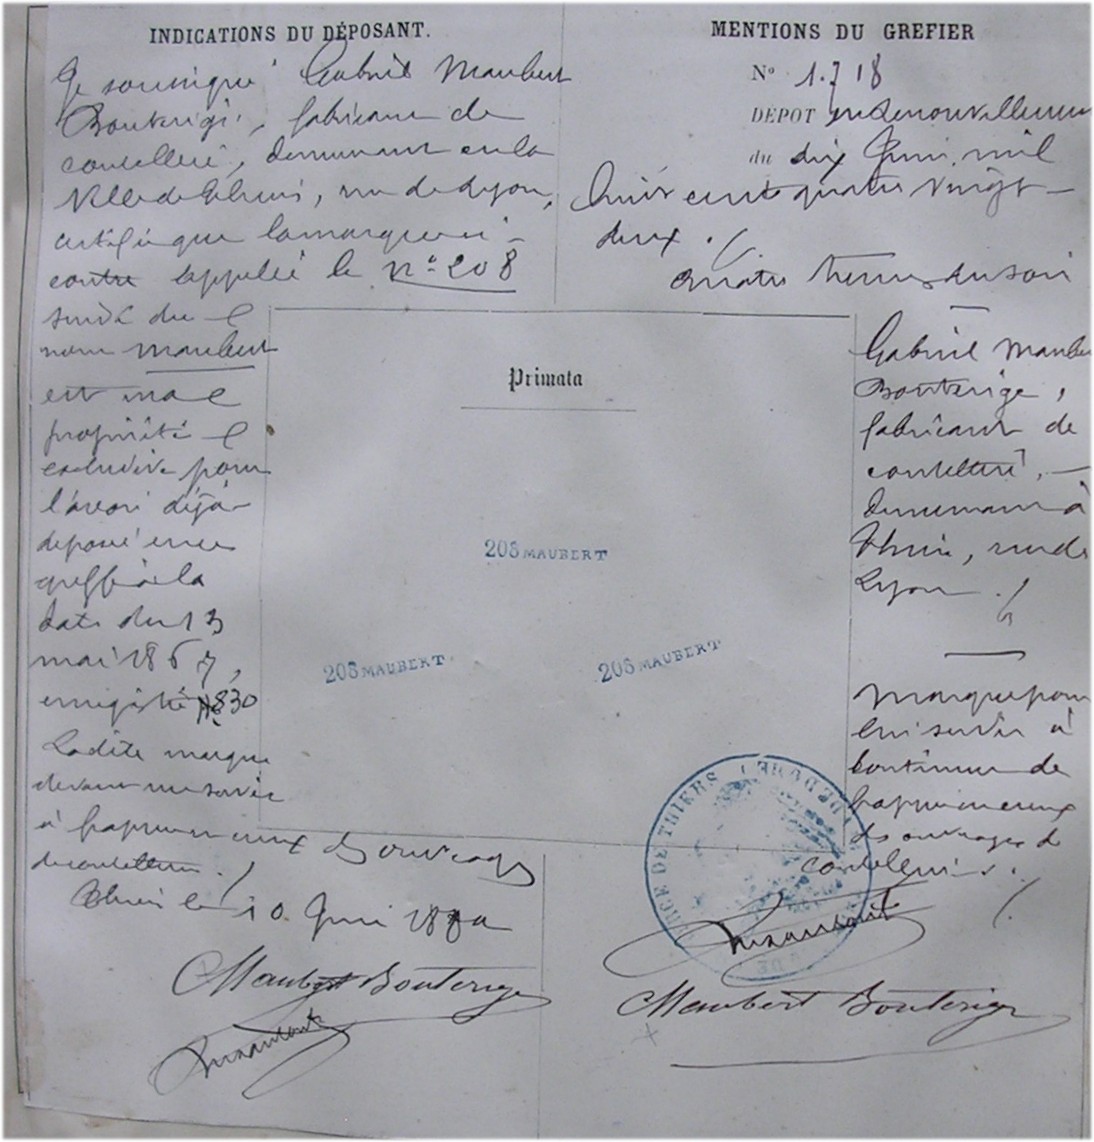 INDICATIONS DU DÉPOSANT.
Je soussigné Gabriel Maubert
Bouterige, fabricant de
coutellerie, demeurant en la
Ville de Thiers, rue de Lyon,
certifie que la marque ci-
contre appelée le n° 208
suivi du
nom Maubert
est ma
propriété
exclusive pour
l'avoir déjà
déposé en ce
greffe à la
date du 13
mai 1867,
enregistré N° 830
Ladite marque
devant me servir
à frapper mes ouvrages
de coutellerie.
Thiers le 10 Juin 1882
Maubert Bouterige
MENTIONS DU GREFIER
N° 1.718
DÉPOT en renouvellement
du dix Juin mil
huit cent quatre vingt-
deux.
quatre heures du soir
Primata
208 MAUBERT
208 MAUBERT
208 MAUBERT
Gabriel Maubert
Bouterige,
fabricant de
coutellerie,
demeurant à
Thiers, rue de
Lyon.
Marque pour
lui servir à
continuer de
frapper
ses ouvrages de
coutellerie.
DE THIERS
Maubert Bouterige